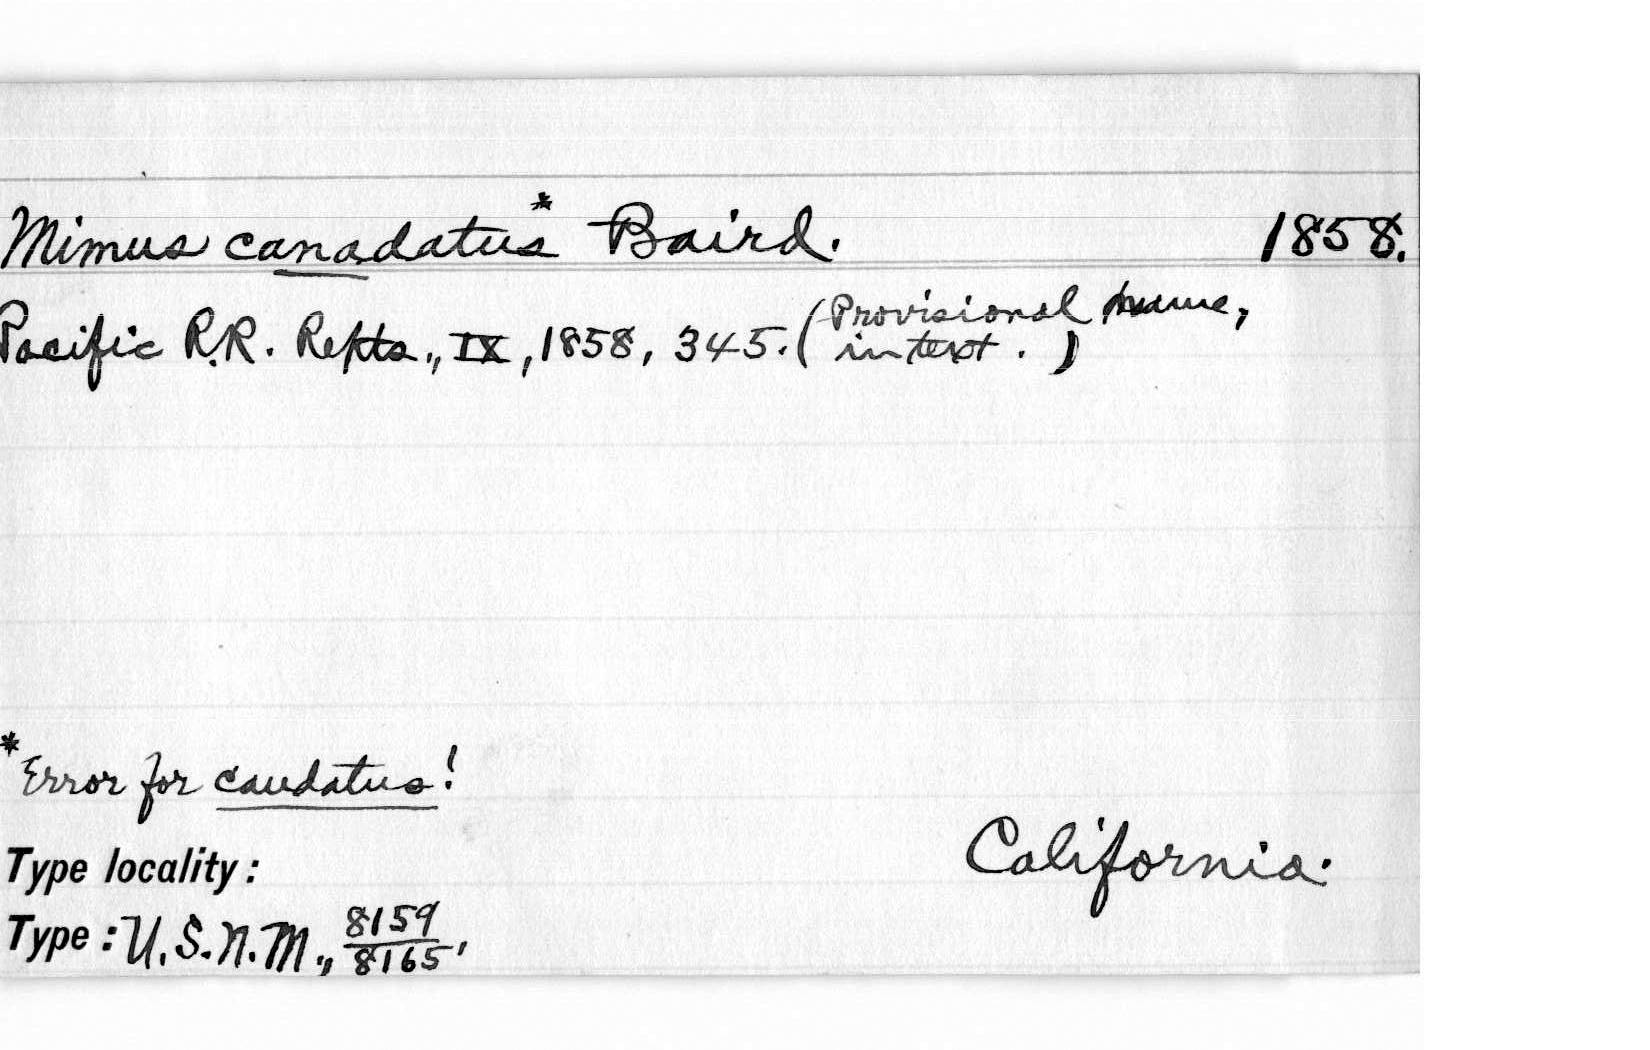 Mimus canadatus* Baird. 1858.
Pacific R.R. Repts., IX, 1858, 345. (Provisional name,
in text.)
*Error for caudatus!
Type locality: California.
Type: U.S.N.M., 8159/8165,